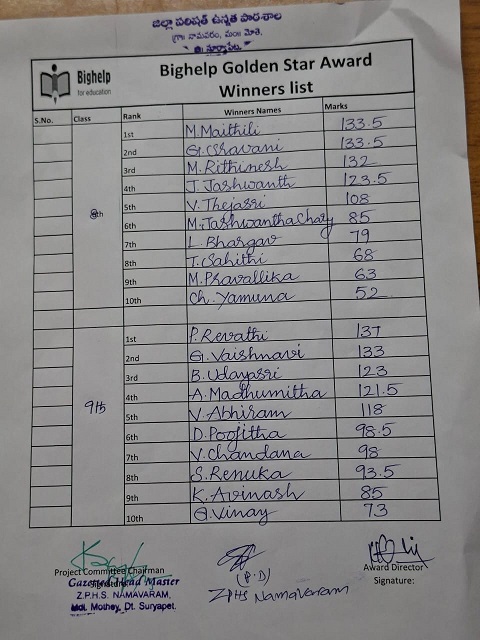 జిల్లా పరిషత్ ఉన్నత పాఠశాల
గ్రా: నామవరం, మం: మోతె,
జి: సూర్యాపేట.
Bighelp
for education
Bighelp Golden Star Award
Winners list
S.No. Class Rank Winners Names Marks
8th
1st M.Maithili 133.5
2nd G.Sravani 133.5
3rd M.Rithinesh 132
4th J.Jashwanth 123.5
5th V.Thejasri 108
6th M.Jashwantha Chary 85
7th L.Bhargav 79
8th T.Sahithi 68
9th M.Pravallika 63
10th Ch.Yamuna 52
9th
1st P.Revathi 137
2nd G.Vaishnavi 133
3rd B.Udayasri 123
4th A.Madhumitha 121.5
5th V.Abhiram 118
6th D.Poojitha 98.5
7th V.Chandana 98
8th S.Renuka 93.5
9th K.Avinash 85
10th G.Vinay 73
Project Committee Chairman
Signature:
Gazetted Head Master
Z.P.H.S. NAMAVARAM,
Mdl. Mothey, Dt. Suryapet.
(P.D)
ZPHS Namavaram
Award Director
Signature: